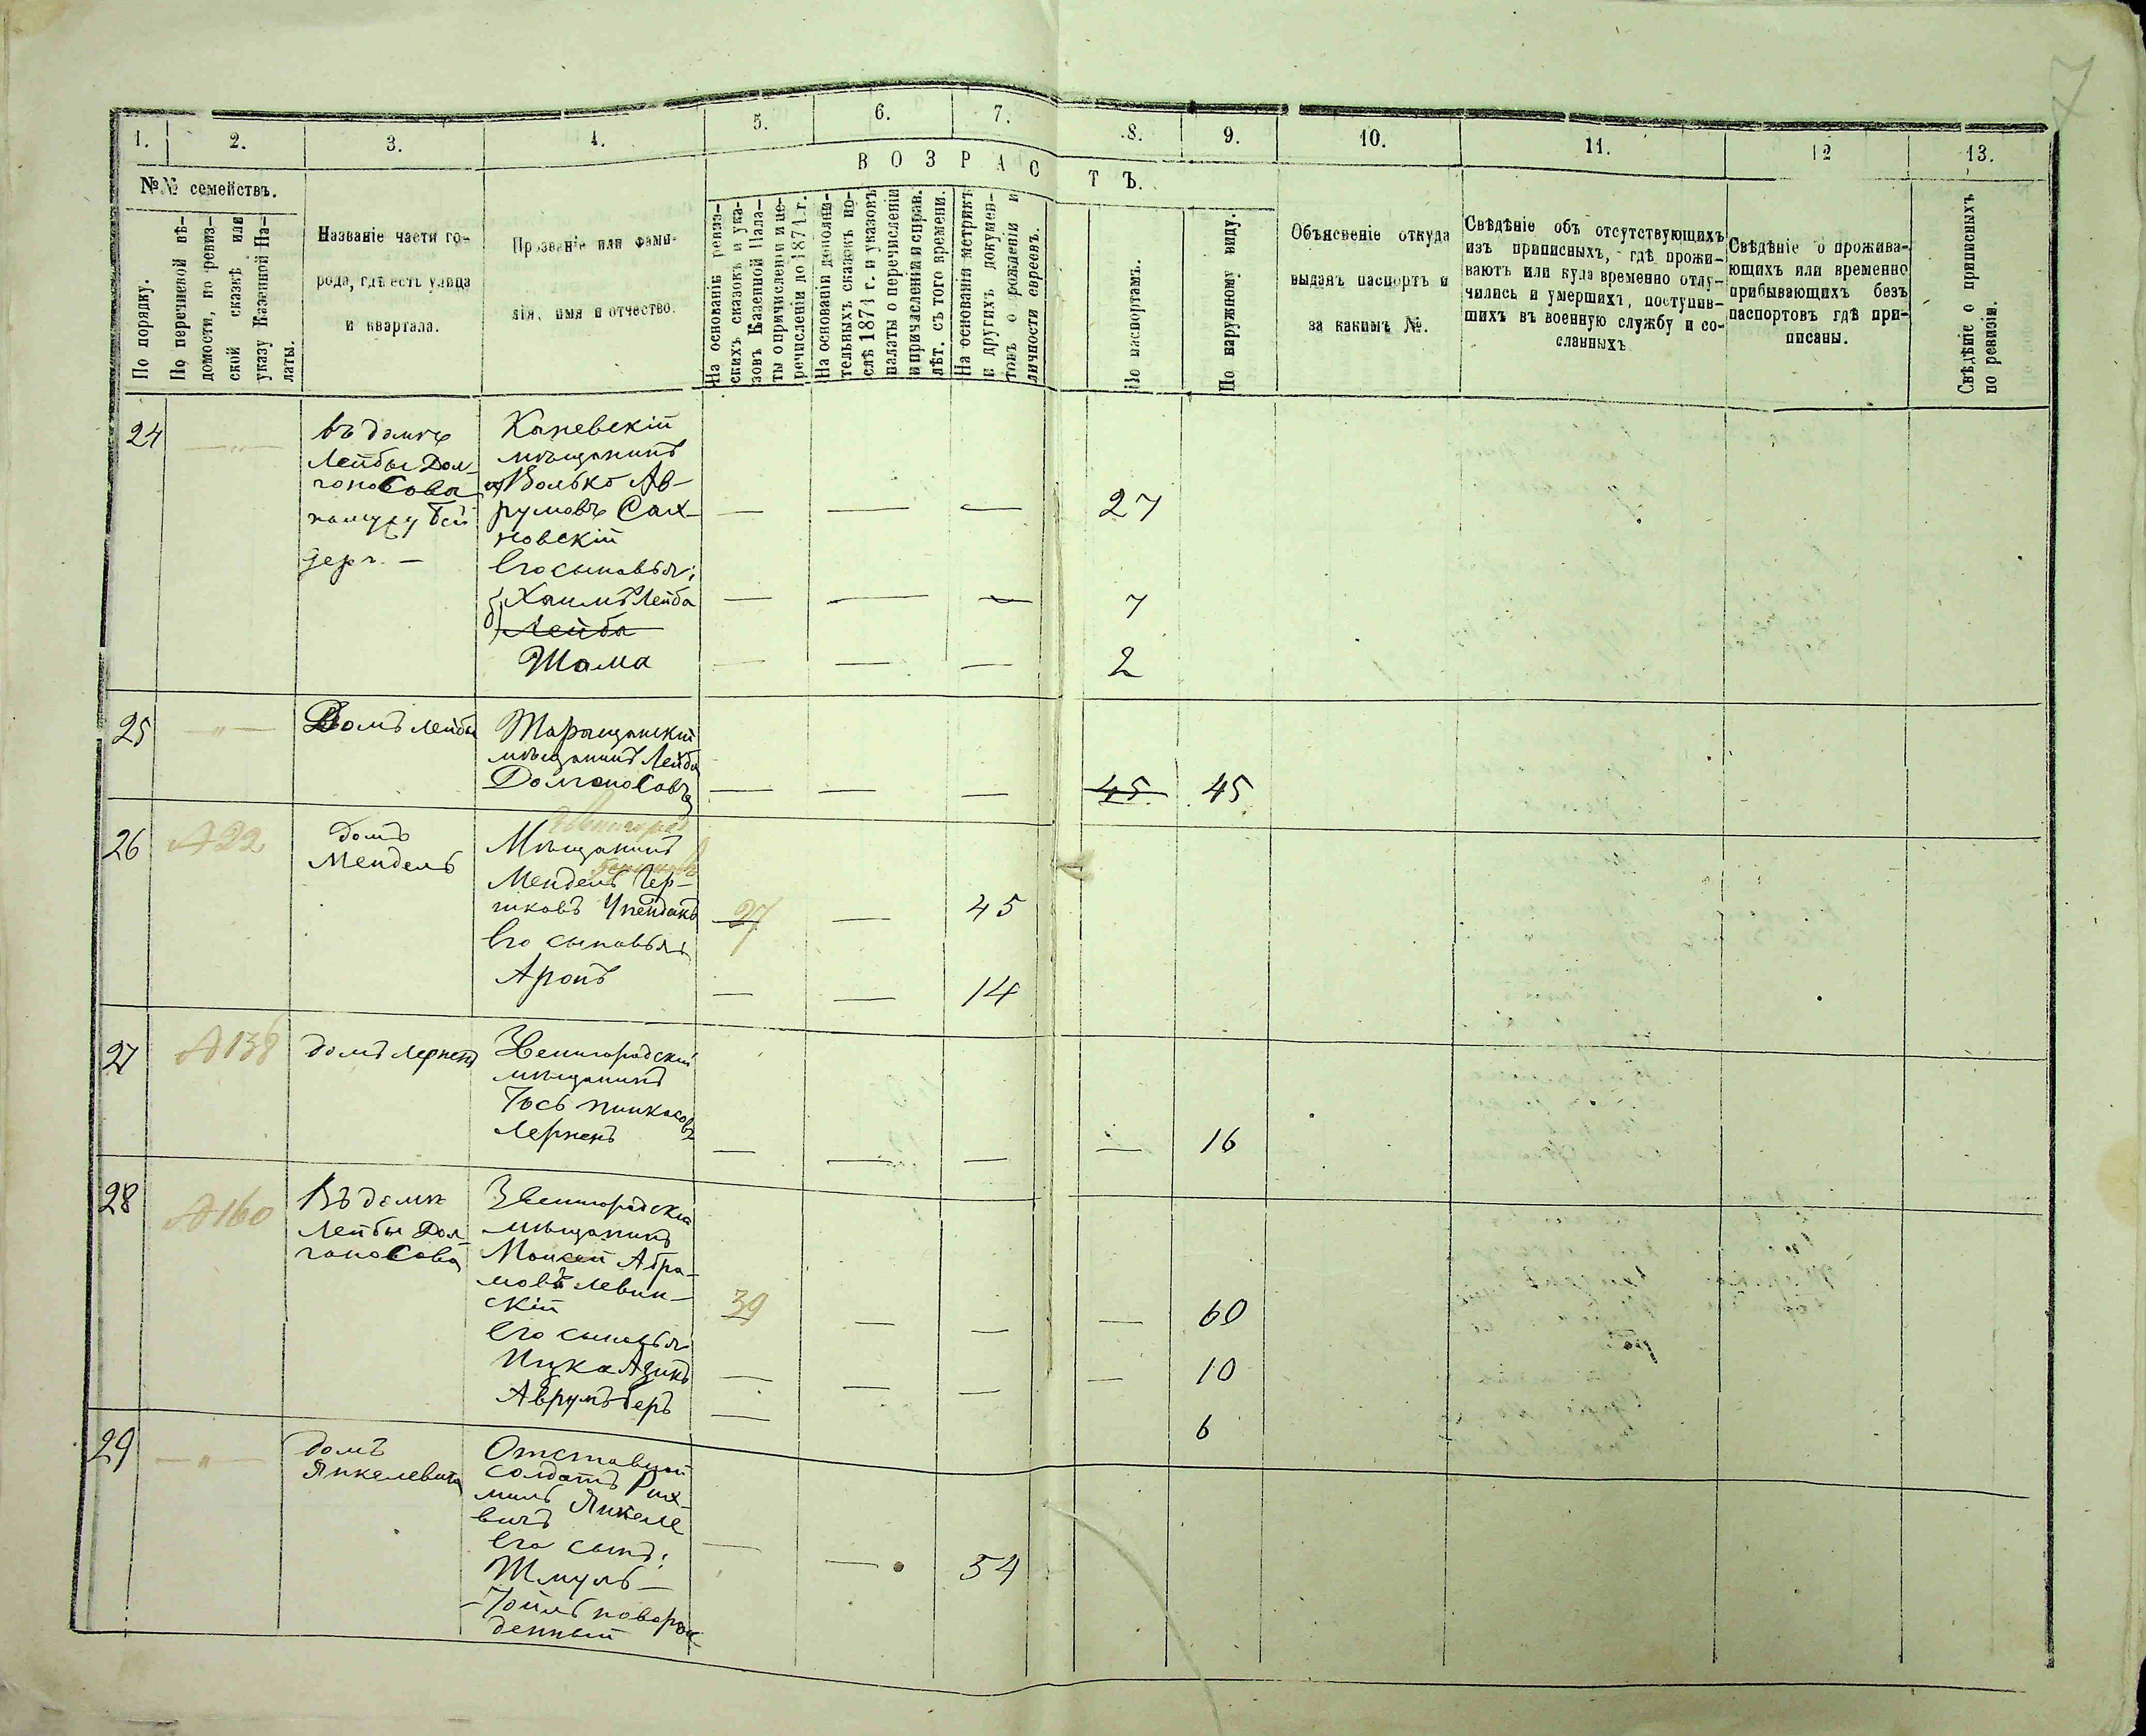 7
1. 2. 3. 4. 5. 6. 7. 8. 9. 10. 11. 12 13.
В О З Р А С Т Ъ.
№№ семействъ.
По порядку.
По переписной вѣ-
домости, по ревиз-
ской сказкѣ или
указу Казенной Па-
латы.
Названіе части го-
рода, гдѣ есть улица
и квартала.
Прозваніе или фами-
лія, имя и отчество.
На основаніи ревиз-
скихъ сказокъ и ука-
зовъ Казенной Пала-
ты о причисленіи и пе-
речисленіи до 1874 г.
На основаніи дополни-
тельныхъ сказокъ по-
слѣ 1874 г. и указовъ
палаты о перечисленіи
и причисленіи и справ.
лѣт. съ того времени.
На основаніи метрикъ
и другихъ докумен-
товъ о рожденіи и
личности евреевъ.
По паспортамъ.
По наружному виду.
Объясненіе откуда
выданъ паспортъ и
за какимъ №.
Свѣдѣніе объ отсутствующихъ
изъ приписныхъ, гдѣ прожи-
ваютъ или куда временно отлу-
чились и умершихъ, поступив-
шихъ въ военную службу и со-
сланныхъ
Свѣдѣніе о прожива-
ющихъ или временно
прибывающихъ безъ
паспортовъ гдѣ при-
писаны.
Свѣдѣніе о приписныхъ
по ревизіи.
24 — " — въ домѣ Каневскій
Лейбы Дол- мѣщанинъ
гоносова Волько Ав-
румовъ Сах- — — — 27
новскій
Его сыновья:
Хаимъ Лейба — — — 7
Лейба
Шама — — — 2
25 — " — Домъ Лейбы Таращанскій
мѣщанинъ Лейба
Долгоносовъ — — — 45 45
26 № 22 домъ Звенигород
Мендель Мѣщанинъ
Мендель Гер-
шковъ 27 — 45
Его сыновья:
Аронъ — — 14
27 № 138 домъ Лернеръ Звенигородскій
мѣщанинъ
Іось Пинкасовъ
Лернеръ — — — — 16
28 № 160 Въ домѣ Звенигородскій
Лейбы Дол- мѣщанинъ
гоносова Моисей Абра-
мовъ Левин-
скій 39 — — — 60
Его сыновья
Ицка Азикъ — — — — 10
Аврумъ-Беръ — 6
29 — " — домъ Отставной
Янкелевича солдатъ Рах-
миль Янкеле
вичъ
Его сынъ: — — 54
Шмуль —
-Іоиль новорож-
денный